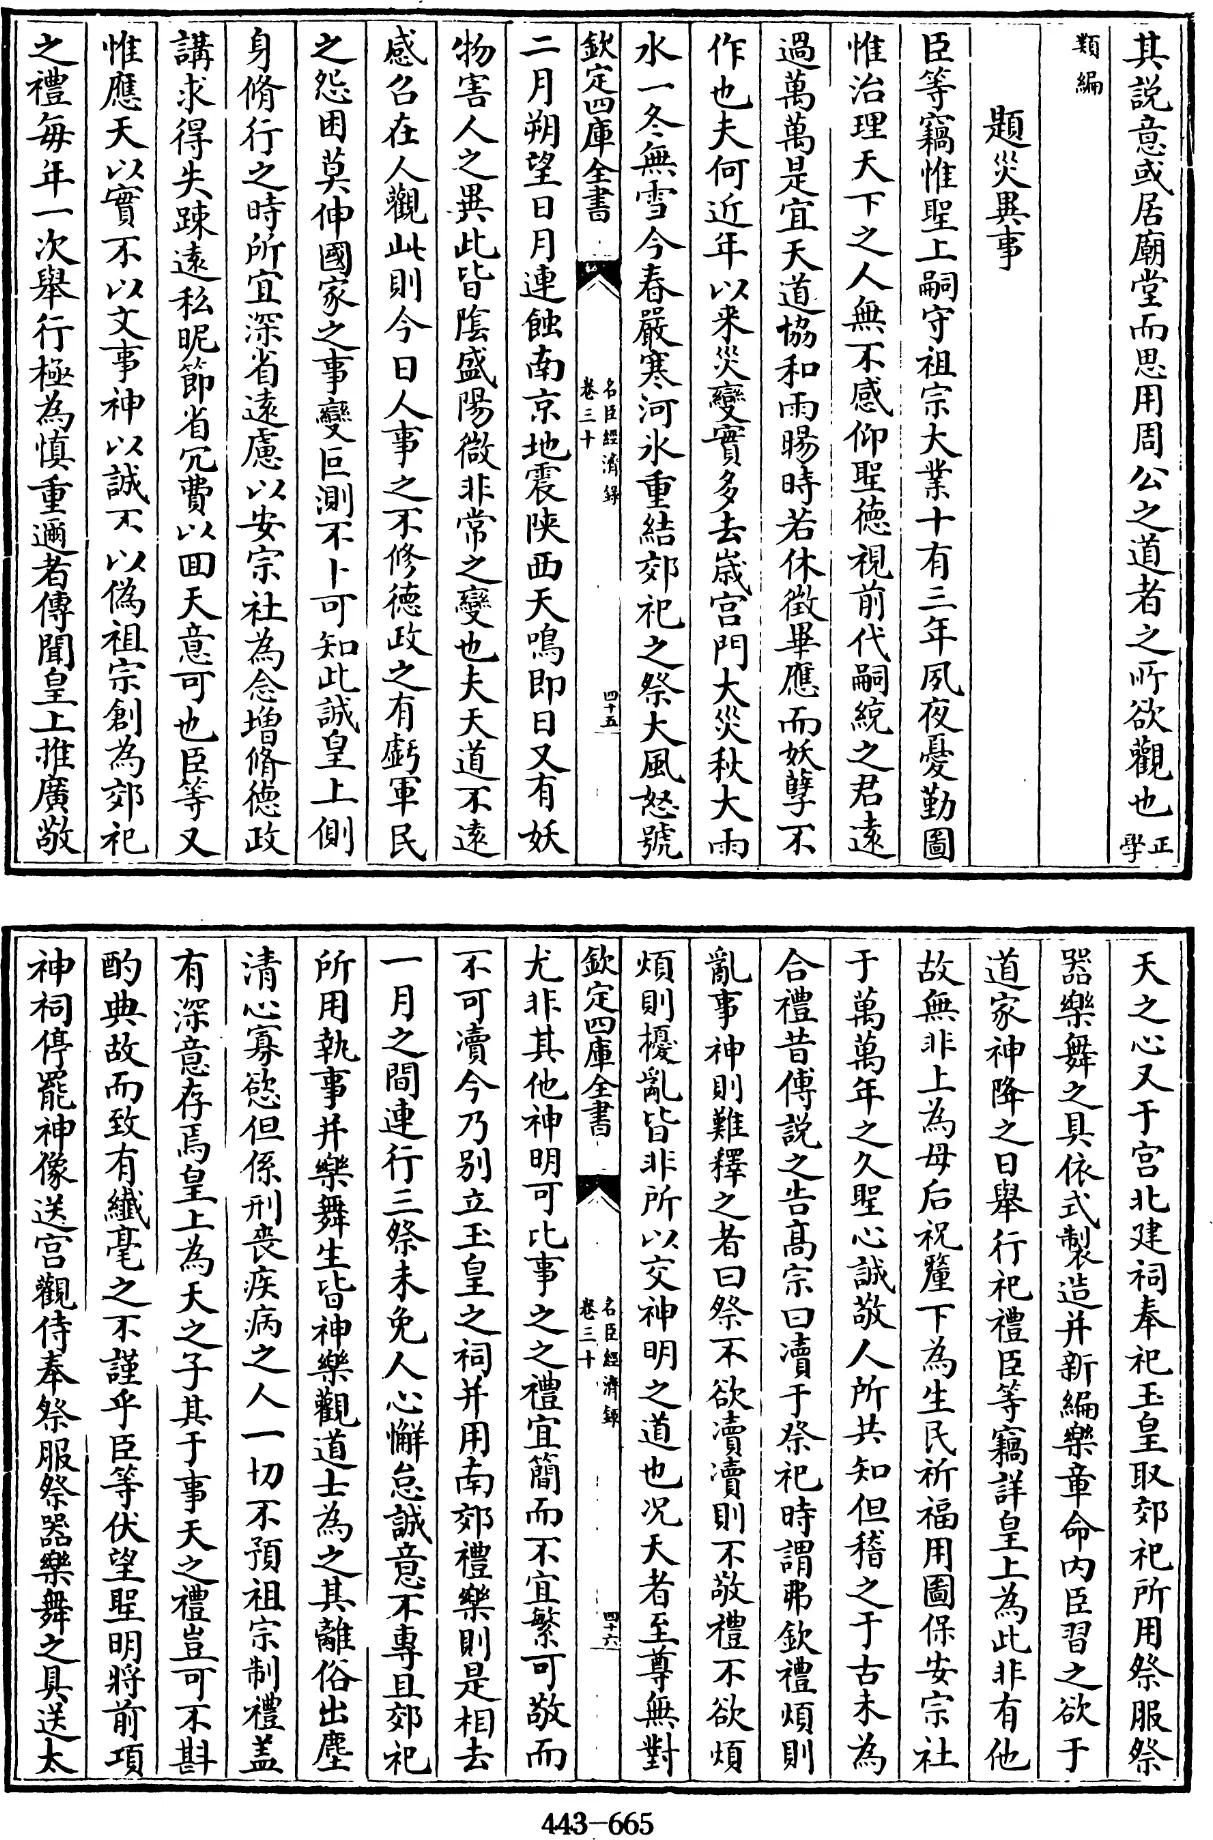 其說意或居廟堂而思用周公之道者之所欲觀也正學
類編
題災異事
臣等竊惟聖上嗣守祖宗大業十有三年夙夜憂勤圖
惟治理天下之人無不感仰聖德視前代嗣統之君遠
過萬萬是宜天道協和雨暘時若休徵畢應而妖孽不
作也夫何近年以来災變實多去歲宫門大災秋大雨
水一冬無雪今春嚴寒河氷重結郊祀之祭大風怒號
欽定四庫全書
名臣經濟録
卷三十
四十五
二月朔望日月連蝕南京地震陜西天鳴即日又有妖
物害人之異此皆陰盛陽微非常之變也夫天道不遠
感召在人觀此則今日人事之不修德政之有虧軍民
之怨困莫伸國家之事變叵測不卜可知此誠皇上側
身脩行之時所宜深省遠慮以安宗社為念增脩德政
講求得失踈遠私昵節省冗費以回天意可也臣等又
惟應天以實不以文事神以誠不以偽祖宗創為郊祀
之禮每年一次舉行極為慎重邇者傳聞皇上推廣敬
天之心又于宫北建祠奉祀玉皇取郊祀所用祭服祭
器樂舞之具依式製造并新編樂章命内臣習之欲于
道家神降之日舉行祀禮臣等竊詳皇上為此非有他
故無非上為母后祝釐下為生民祈福用圖保安宗社
于萬萬年之久聖心誠敬人所共知但稽之于古未為
合禮昔傅說之告髙宗曰瀆于祭祀時謂弗欽禮煩則
亂事神則難釋之者曰祭不欲瀆瀆則不敬禮不欲煩
煩則擾亂皆非所以交神明之道也况天者至尊無對
欽定四庫全書
名臣經濟録
卷三十
四十六
尤非其他神明可比事之之禮宜簡而不宜繁可敬而
不可瀆今乃别立玉皇之祠并用南郊禮樂則是相去
一月之間連行三祭未免人心懈怠誠意不專且郊祀
所用執事并樂舞生皆神樂觀道士為之其離俗出塵
清心寡慾但係刑喪疾病之人一切不預祖宗制禮蓋
有深意存焉皇上為天之子其于事天之禮豈可不斟
酌典故而致有纎毫之不謹乎臣等伏望聖明將前項
神祠停罷神像送宫觀侍奉祭服祭器樂舞之具送太
443-665